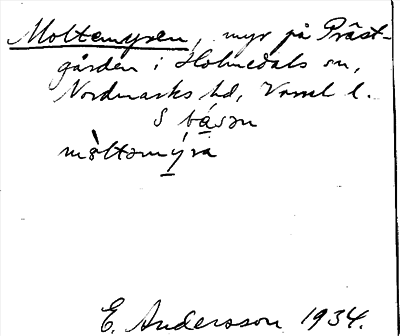 Moltemyren, myr på Präst-
gården i Holmedals sn,
Nordmarks hd, Värml l.
S båsən
mòltəmýra
E. Andersson 1934.